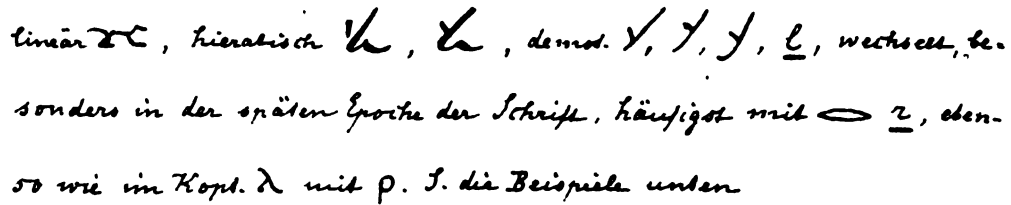 linear, hieratisch, , demot. , , , l, wechselt, be-
sonders in der späten Epoche der Schrift, häufigst mit r, eben-
so wie im Kopt. λ mit ρ. S. die Beispiele unten